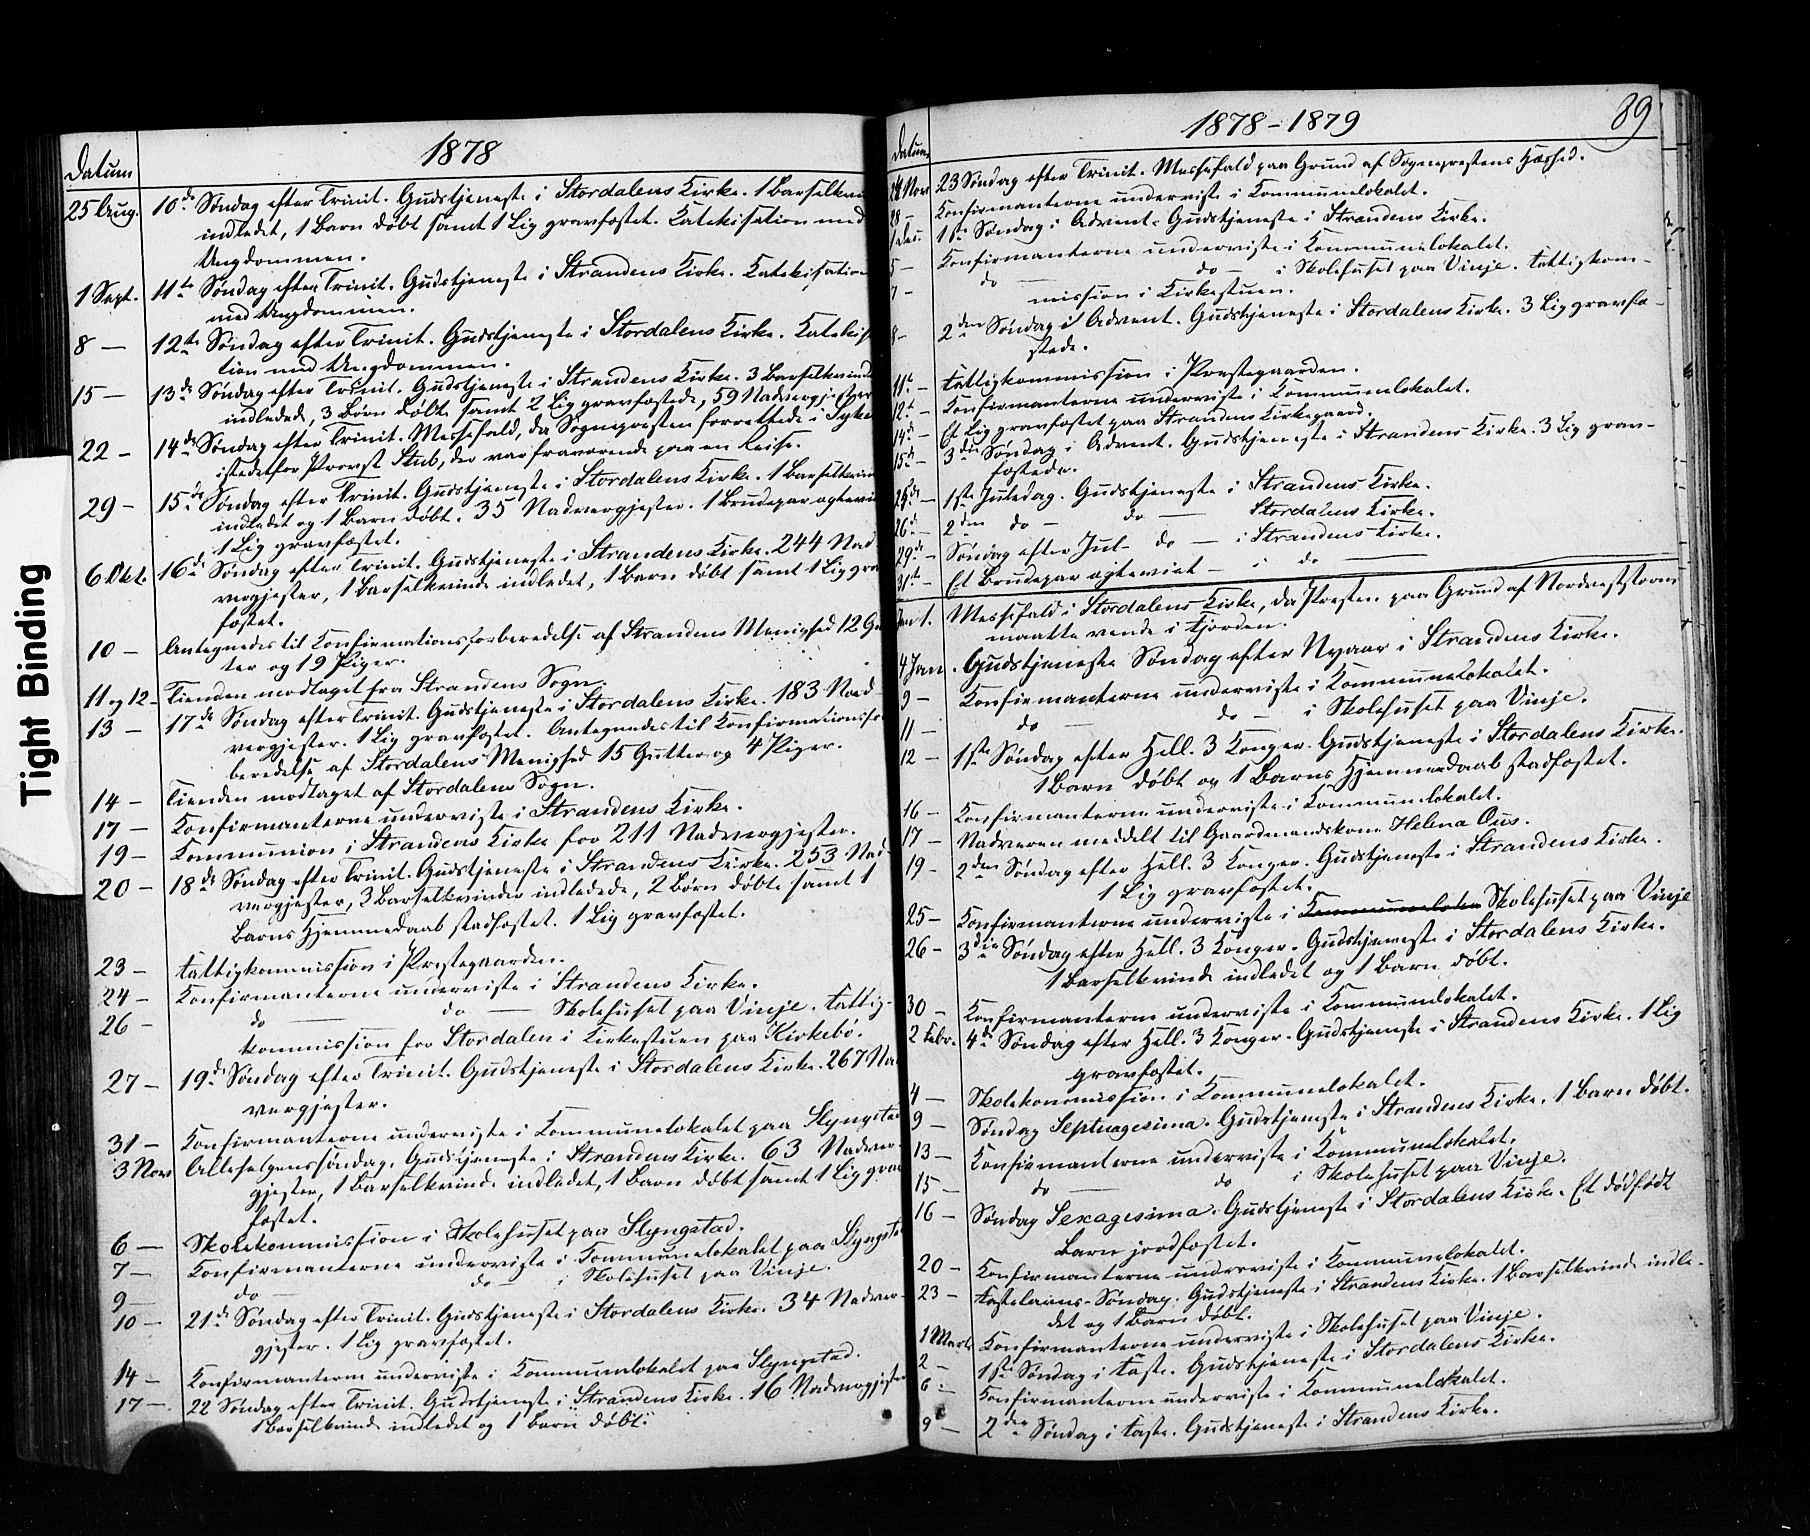 Tight Binding
Datum
1878
25 Aug. 10de Søndag efter Trinit. Gudstjeneste i Stordalens Kirke. 1 Barselkvin
indledet, 1 Barn døbt samt 1 Lig gravfæstet. Katekisation med
Ungdommen.
1 Sept. 11te Søndag efter Trinit. Gudstjeneste i Strandens Kirke. Katekisation
med Ungdommen.
8 — 12te Søndag efter Trinit. Gudstjeneste i Stordalens Kirke. Katekisa
tion med Ungdommen.
15 — 13de Søndag efter Trinit. Gudstjeneste i Strandens Kirke. 3 Barselkvinde
indledede, 3 Børn døbte samt 2 Lig gravfæstede, 59 Nadvergjester
22 — 14de Søndag efter Trinit. Messefald, da Sognepresten forrettede i Sykk
istedetfor Provst Stub, der var fraværende paa en Reise.
29 — 15de Søndag efter Trinit. Gudstjeneste i Stordalens Kirke. 1 Barselkvin
indledet og 1 Barn døbt. 35 Nadvergjester. 1 Brudepar ægtevi
1 Lig gravfæstet.
6 Okt. 16de Søndag efter Trinit. Gudstjeneste i Strandens Kirke. 244 Nad
vergjester, 1 Barselkvinde indledet, 1 Barn døbt samt 1 Lig gra
fæstet.
10 — Antegnedes til Konfirmationsforberedelse af Strandens Menighed 12 Gu
ter og 19 Piger.
11 og 12 — Tienden modtaget fra Strandens Sogn.
13 — 17de Søndag efter Trinit. Gudstjeneste i Stordalens Kirke. 183 Nad
vergjester. 1 Lig gravfæstet. Antegnedes til Konfirmationsfo
beredelse af Stordalens Menighed 15 Gutter og 4 Piger.
14 — Tienden modtaget af Stordalens Sogn.
17 — Konfirmanterne underviste i Strandens Kirke.
19 — Kommunion i Strandens Kirke for 211 Nadvergjester.
20 — 18de Søndag efter Trinit. Gudstjeneste i Strandens Kirke. 253 Nad-
vergjester, 3 Barselkvinder indledede, 2 Børn døbte samt 1
Barns Hjemmedaab stadfæstet. 1 Lig gravfæstet.
23 — Fattigkommission i Prestegaarden.
24 — Konfirmanterne underviste i Strandens Kirke.
26 — do — do — Skolehuset paa Vinje. Fattig-
kommission for Stordalen i Kirkestuen paa Kirkebö.
27 — 19de Søndag efter Trinit. Gudstjeneste i Stordalens Kirke. 267 Na
vergjester.
31 — Konfirmanterne underviste i Kommunelokalet paa Slyngstad
3 Nov Allehelgenssøndag. Gudstjeneste i Strandens Kirke. 63 Nadver-
gjester, 1 Barselkvinde indledet, 1 Barn døbt samt 1 Lig grav
fæstet.
6 — Skolekommission i Skolehuset paa Slyngstad.
7 — Konfirmanterne underviste i Kommunelokalet paa Slyngsta
9 — do — do — i Skolehuset paa Vinje.
10 — 21de Søndag efter Trinit. Gudstjeneste i Stordalens Kirke. 34 Nadver-
gjester. 1 Lig gravfæstet.
14 — Konfirmanterne underviste i Kommunelokalet paa Slyngstad.
17 — 22 Søndag efter Trinit. Gudstjeneste i Strandens Kirke. 16 Nadvergjester
1 Barselkvinde indledet og 1 Barn døbt.
Datum
1878-1879
89
24 Nov 23 Søndag efter Trinit. Messefald paa Grund af Sogneprestens Hæshed.
28 Konfirmanterne underviste i Kommunelokalet.
1 Dec. 1ste Søndag i Advent. Gudstjeneste i Strandens Kirke.
5 — Konfirmanterne underviste i Kommunelokalet.
7 — do — do — i Skolehuset paa Vinje. Fattigkom-
mission i Kirkestuen.
8 — 2den Søndag i Advent. Gudstjeneste i Stordalens Kirke. 3 Lig gravfæ-
stede.
11te — Fattigkommission i Prestegaarden.
12te — Konfirmanterne underviste i Kommunelokalet.
14de — Et Lig gravfæstet paa Strandens Kirkegaard.
15de — 3die Søndag i Advent. Gudstjeneste i Strandens Kirke. 3 Lig grav-
fæstede.
25de — 1ste Juledag. Gudstjeneste i Strandens Kirke.
26de 2den do — do — Stordalens Kirke.
29de — Søndag efter Jul — do — i Strandens Kirke.
31te — Et Brudepar ægteviet — i do —
Jan 1. Messefald i Stordalens Kirke, da Presten paa Grund af Nordveststorm
maatte vende i Fjorden.
4 Jan. Gudstjeneste Søndag efter Nyaar i Strandens Kirke.
9 — Konfirmanterne underviste i Kommunelokalet.
11 — do — do — i Skolehuset paa Vinje.
12 — 1ste Søndag efter Hell. 3 Konger. Gudstjeneste i Stordalens Kirke.
1 Barn døbt og 1 Barns Hjemmedaab stadfæstet.
16 — Konfirmanterne underviste i Kommunelokalet.
17 — Nadveren meddelt til Gaardmandskone Helena Ous.
19 — 2den Søndag efter Hell. 3 Konger. Gudstjeneste i Strandens Kirke.
1 Lig gravfæstet.
25 — Konfirmanterne underviste i Kommunelokal Skolehuset paa Vinje
26 — 3die Søndag efter Hell. 3 Konger. Gudstjeneste i Stordalens Kirke.
1 Barselkvinde indledet og 1 Barn døbt.
30 — Konfirmanterne underviste i Kommunelokalet.
2 Febr. 4de Søndag efter Hell. 3 Konger. Gudstjeneste i Strandens Kirke. 1 Lig
gravfæstet.
4 — Skolekommission i Kommunelokalet.
9 — Søndag Septuagesima. Gudstjeneste i Strandens Kirke. 1 Barn døbt.
13 — Konfirmanterne underviste i Kommunelokalet.
15 — do — do i Skolehuset paa Vinje.
16 — Søndag Sexagesima. Gudstjeneste i Stordalens Kirke. Et dødfødt
Barn jordfæstet.
20 — Konfirmanterne underviste i Kommunelokalet.
23 — Fastelavns-Søndag. Gudstjeneste i Strandens Kirke. 1 Barselkvinde indle-
det og 1 Barn døbt.
1 Marts Konfirmanterne underviste i Skolehuset paa Vinje.
2 — 1ste Søndag i Faste. Gudstjeneste i Stordalens Kirke.
6 — Konfirmanterne underviste i Kommunelokalet.
9 — 2den Søndag i Faste. Gudstjeneste i Strandens Kirke.